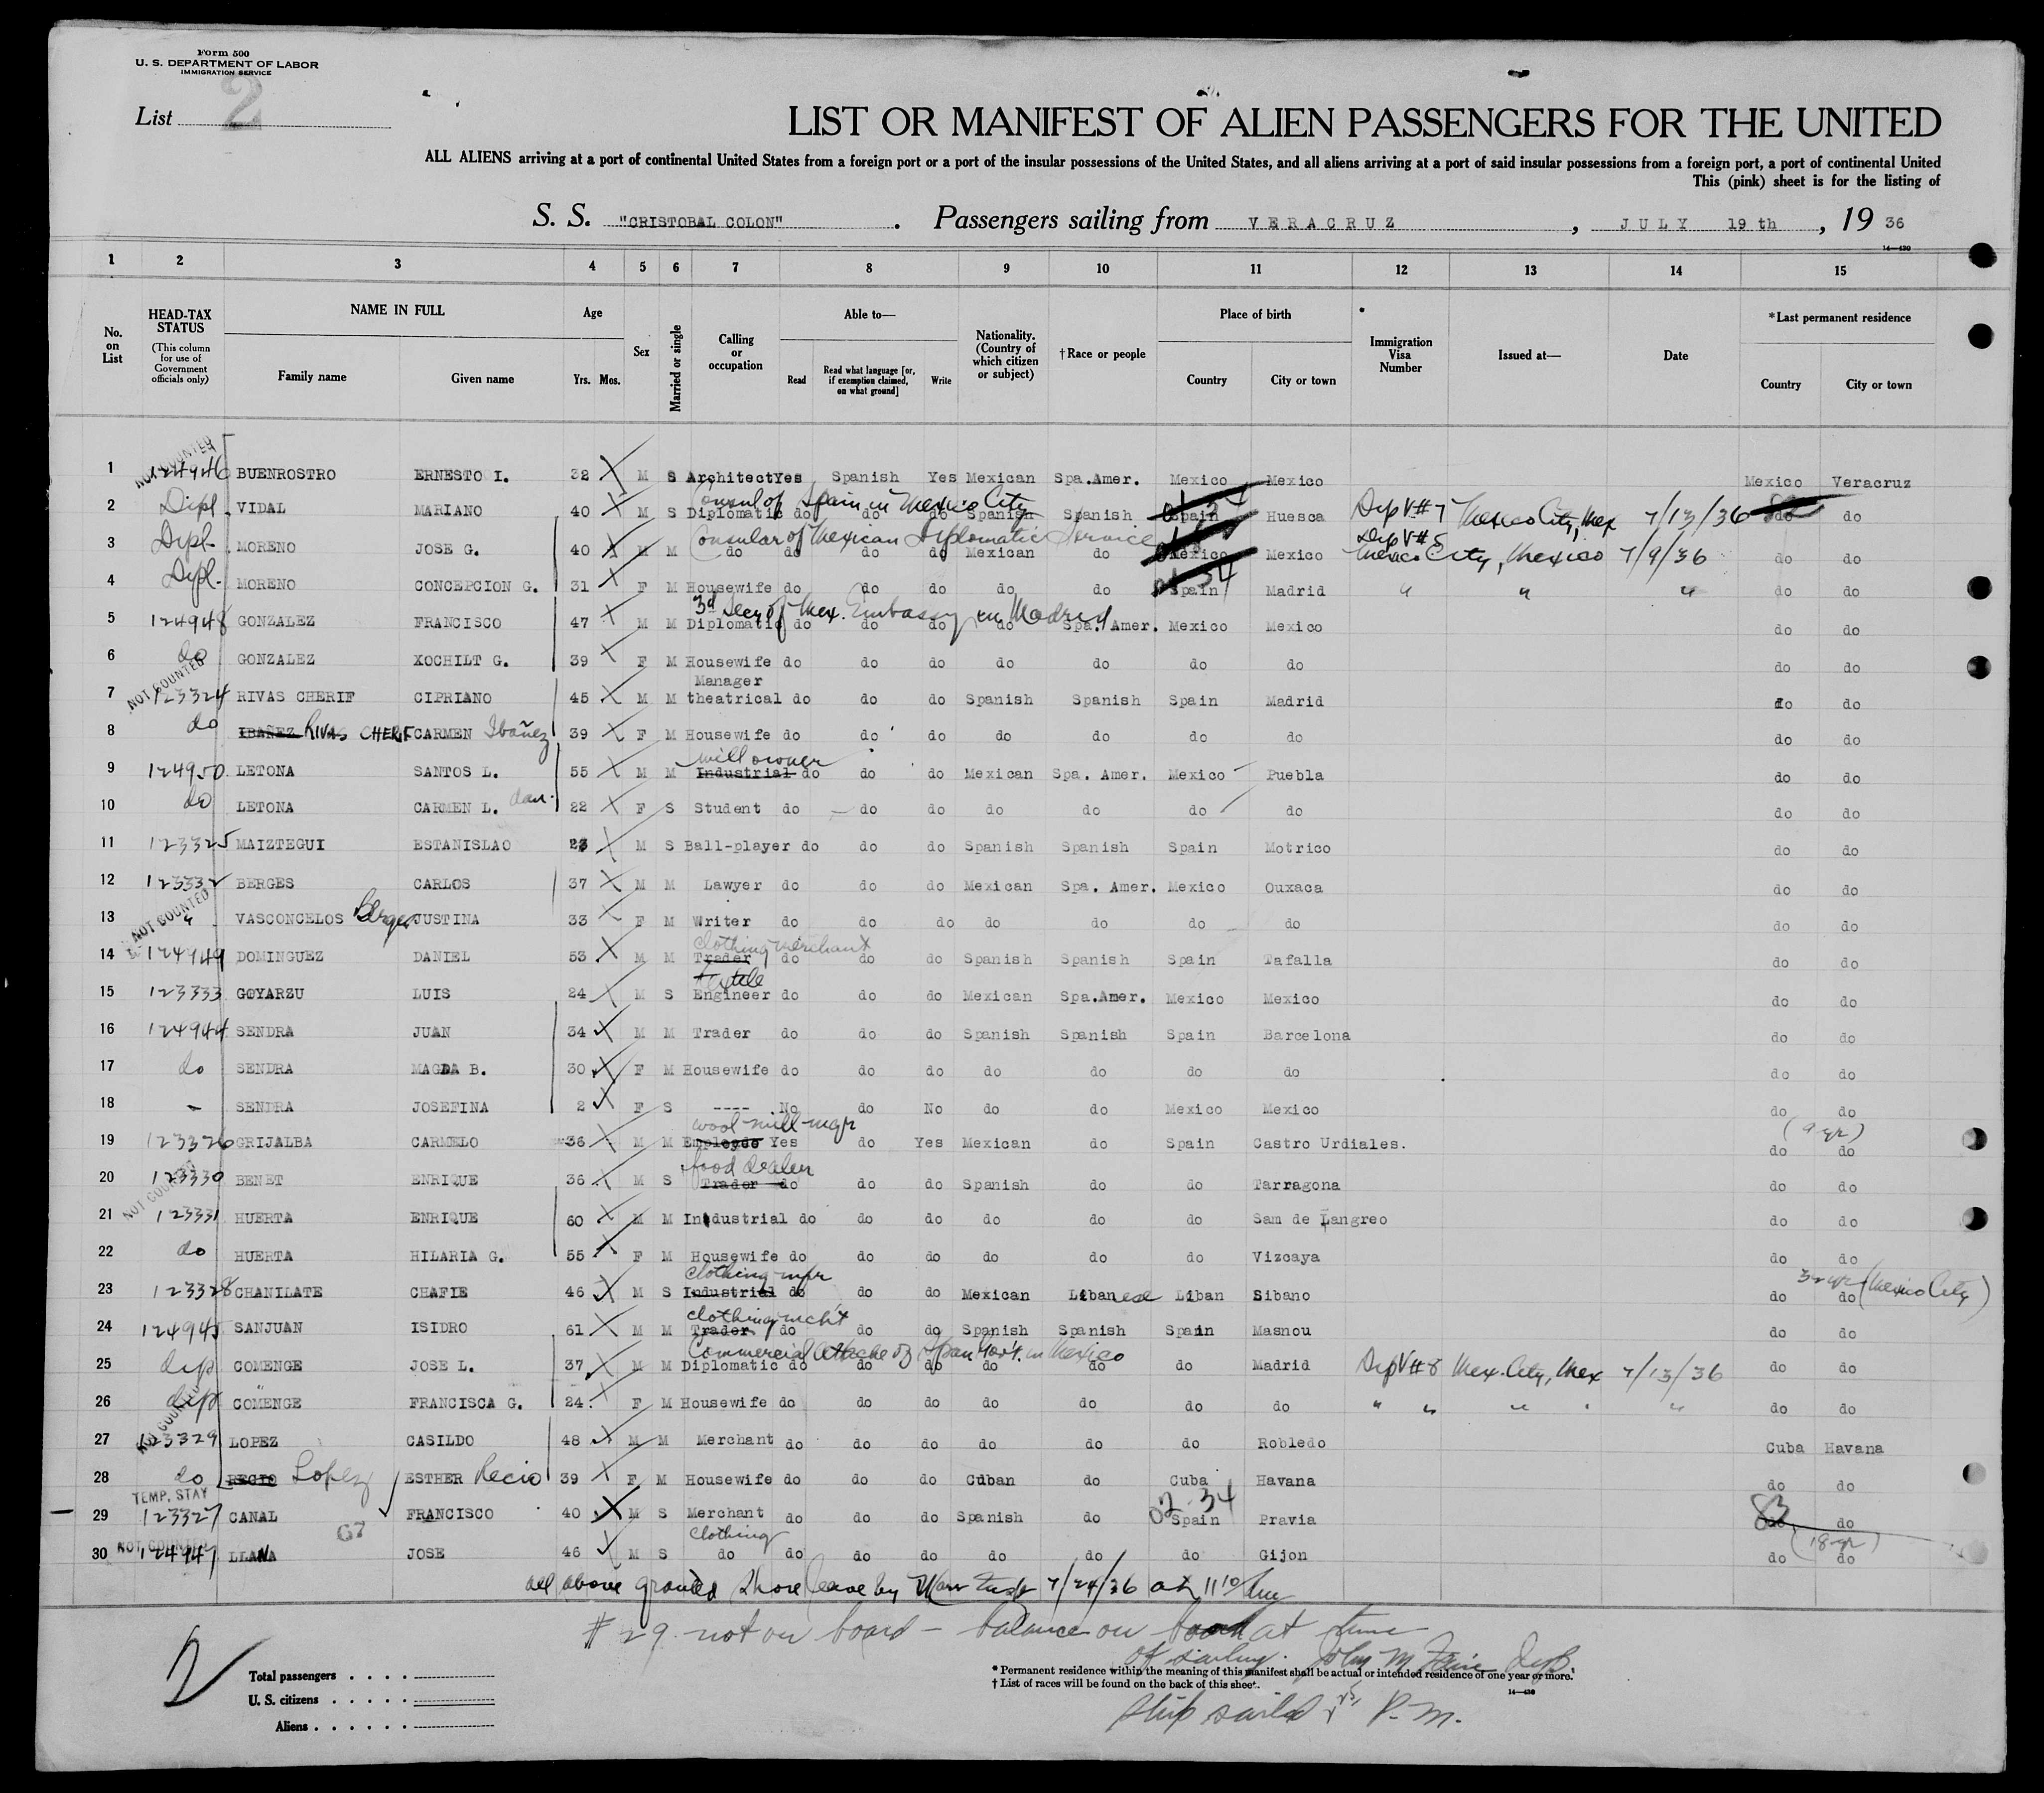 Form 500
U. S. DEPARTMENT OF LABOR
IMMIGRATION SERVICE
List 2
LIST OR MANIFEST OF ALIEN PASSENGERS FOR THE UNITED
ALL ALIENS arriving at a port of continental United States from a foreign port or a port of the insular possessions of the United States, and all aliens arriving at a port of said insular possessions from a foreign port, a port of continental United
This (pink) sheet is for the listing of
S. S. "CRISTOBAL COLON". Passengers sailing from VERACRUZ, JULY 19 th, 19 36
14—430
1 2 3 4 5 6 7 8 9 10 11 12 13 14 15
No. on List
HEAD-TAX STATUS (This column for use of Government officials only)
NAME IN FULL Family name Given name
Age Yrs. Mos.
Sex
Married or single
Calling or occupation
Able to— Read Read what language [or, if exemption claimed, on what ground] Write
Nationality. (Country of which citizen or subject)
†Race or people
Place of birth Country City or town
Immigration Visa Number
Issued at—
Date
*Last permanent residence Country City or town
NOT COUNTED
1 124946 BUENROSTRO ERNESTO I. 32 M S Architect Yes Spanish Yes Mexican Spa.Amer. Mexico Mexico Mexico Veracruz
Consul of Spain in Mexico City
2 Dipl. VIDAL MARIANO 40 M S Diplomatic do do do Spanish Spanish Spain Huesca Dip V# 7 Mexico City, Mex 7/13/36 do do
Consular of Mexican Diplomatic Service
3 Dipl. MORENO JOSE G. 40 M M do do do do Mexican do Mexico Mexico Dip V# 5 Mexico City, Mexico 7/9/36 do do
4 Dipl. MORENO CONCEPCION G. 31 F M Housewife do do do do do Spain Madrid " " " do do
3d Secy of Mex. Embassy in Madrid
5 124948 GONZALEZ FRANCISCO 47 M M Diplomatic do do do do Spa. Amer. Mexico Mexico do do
6 do GONZALEZ XOCHILT G. 39 F M Housewife do do do do do do do do do
NOT COUNTED
Manager
7 123324 RIVAS CHERIF CIPRIANO 45 M M theatrical do do do Spanish Spanish Spain Madrid do do
8 do IBAÑEZ RIVAS CHERIF CARMEN Ibañez 39 F M Housewife do do do do do do do do do
mill owner
9 124950 LETONA SANTOS L. 55 M M Industrial do do do Mexican Spa. Amer. Mexico Puebla do do
10 do LETONA CARMEN L. dau. 22 F S Student do do do do do do do do do
11 123325 MAIZTEGUI ESTANISLAO 23 M S Ball-player do do do Spanish Spanish Spain Motrico do do
12 123332 BERGES CARLOS 37 M M Lawyer do do do Mexican Spa. Amer. Mexico Ouxaca do do
NOT COUNTED
13 " VASCONCELOS Berges JUSTINA 33 F M Writer do do do do do do do do do
clothing merchant
14 124949 DOMINGUEZ DANIEL 53 M M Trader do do do Spanish Spanish Spain Tafalla do do
textile
15 123333 GOYARZU LUIS 24 M S Engineer do do do Mexican Spa.Amer. Mexico Mexico do do
16 124944 SENDRA JUAN 34 M M Trader do do do Spanish Spanish Spain Barcelona do do
17 do SENDRA MAGDA B. 30 F M Housewife do do do do do do do do do
18 - SENDRA JOSEFINA 2 F S ---- No do No do do Mexico Mexico do do
wool mill mgr
19 123326 GRIJALBA CARMELO 36 M M Empleado Yes do Yes Mexican do Spain Castro Urdiales. (9 yr) do do
food dealer
20 123330 BENET ENRIQUE 36 M S Trader do do do Spanish do do Tarragona do do
NOT COUNTED
21 123331 HUERTA ENRIQUE 60 M M Industrial do do do do do do Sam de Langreo do do
22 do HUERTA HILARIA G. 55 F M Housewife do do do do do do Vizcaya do do
clothing mfr
23 123328 CHANILATE CHAFIE 46 M S Industrial do do do Mexican Libanese Liban Sibano do do (Mexico City)
clothing mcht
24 124945 SANJUAN ISIDRO 61 M M Trader do do do Spanish Spanish Spain Masnou do do
Commercial Attache of Span Govt. in Mexico
25 dip COMENGE JOSE L. 37 M M Diplomatic do do do do do do Madrid Dip V# 8 Mex. City, Mex 7/13/36 do do
26 dip COMENGE FRANCISCA G. 24 F M Housewife do do do do do do do " " " " do do
NOT COUNTED
27 123329 LOPEZ CASILDO 48 M M Merchant do do do do do do Robledo Cuba Havana
28 do RECIO Lopez ESTHER Recio 39 F M Housewife do do do Cuban do Cuba Havana do do
TEMP. STAY
29 123327 CANAL FRANCISCO 40 M S Merchant do do do Spanish do 02-34 Spain Pravia 83 do do
67
NOT COUNTED
clothing
30 124947 LLANA JOSE 46 M S do do do do do do do Gijon (18 yr) do do
all above granted shore leave by 7/24/36 at 11 10/am
# 29 not on board - balance on board at time
of sailing. John M
Total passengers
U. S. citizens
Aliens
* Permanent residence within the meaning of this manifest shall be actual or intended residence of one year or more.
† List of races will be found on the back of this sheet.
14—430
Ship sailed P. M.